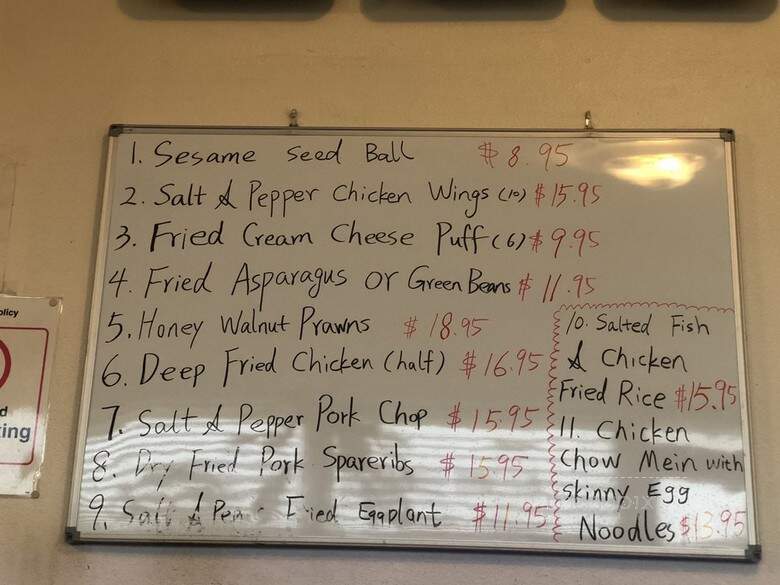 1. Sesame Seed Ball $8.95
2. Salt & Pepper Chicken Wings (10) $15.95
3. Fried Cream Cheese Puff (6) $9.95
4. Fried Asparagus or Green Beans $11.95
5. Honey Walnut Prawns $18.95
6. Deep Fried Chicken (half) $16.95
7. Salt & Pepper Pork Chop $15.95
8. Dry Fried Pork Spareribs $15.95
9. Salt & Pepper Fried Eggplant $11.95
10. Salted Fish
& Chicken
Fried Rice $15.95
11. Chicken
Chow Mein with
skinny Egg
Noodles $13.95
olicy
d
ing